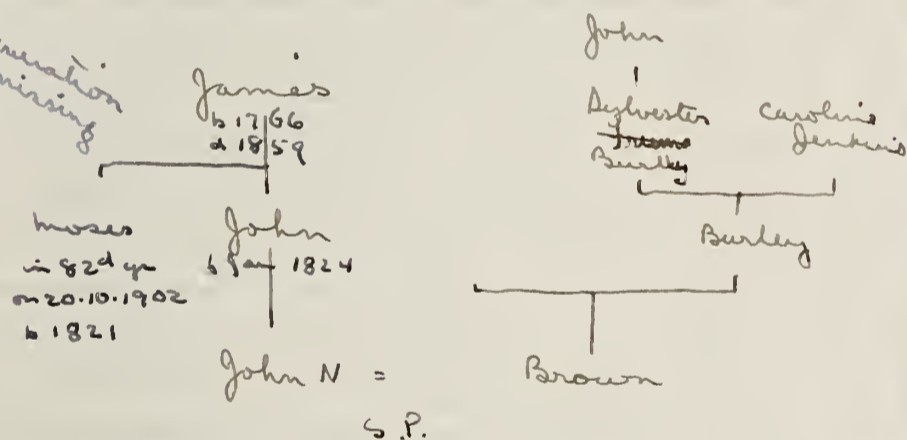 missing
James
b 1766
d 1859
Moses
in 82d yr
on 20.10.1902
b 1821
John
b Jan 1824
John N =
S.P.
John
Sylvester
Burley
Caroline
Jenkins
Burley
Brown